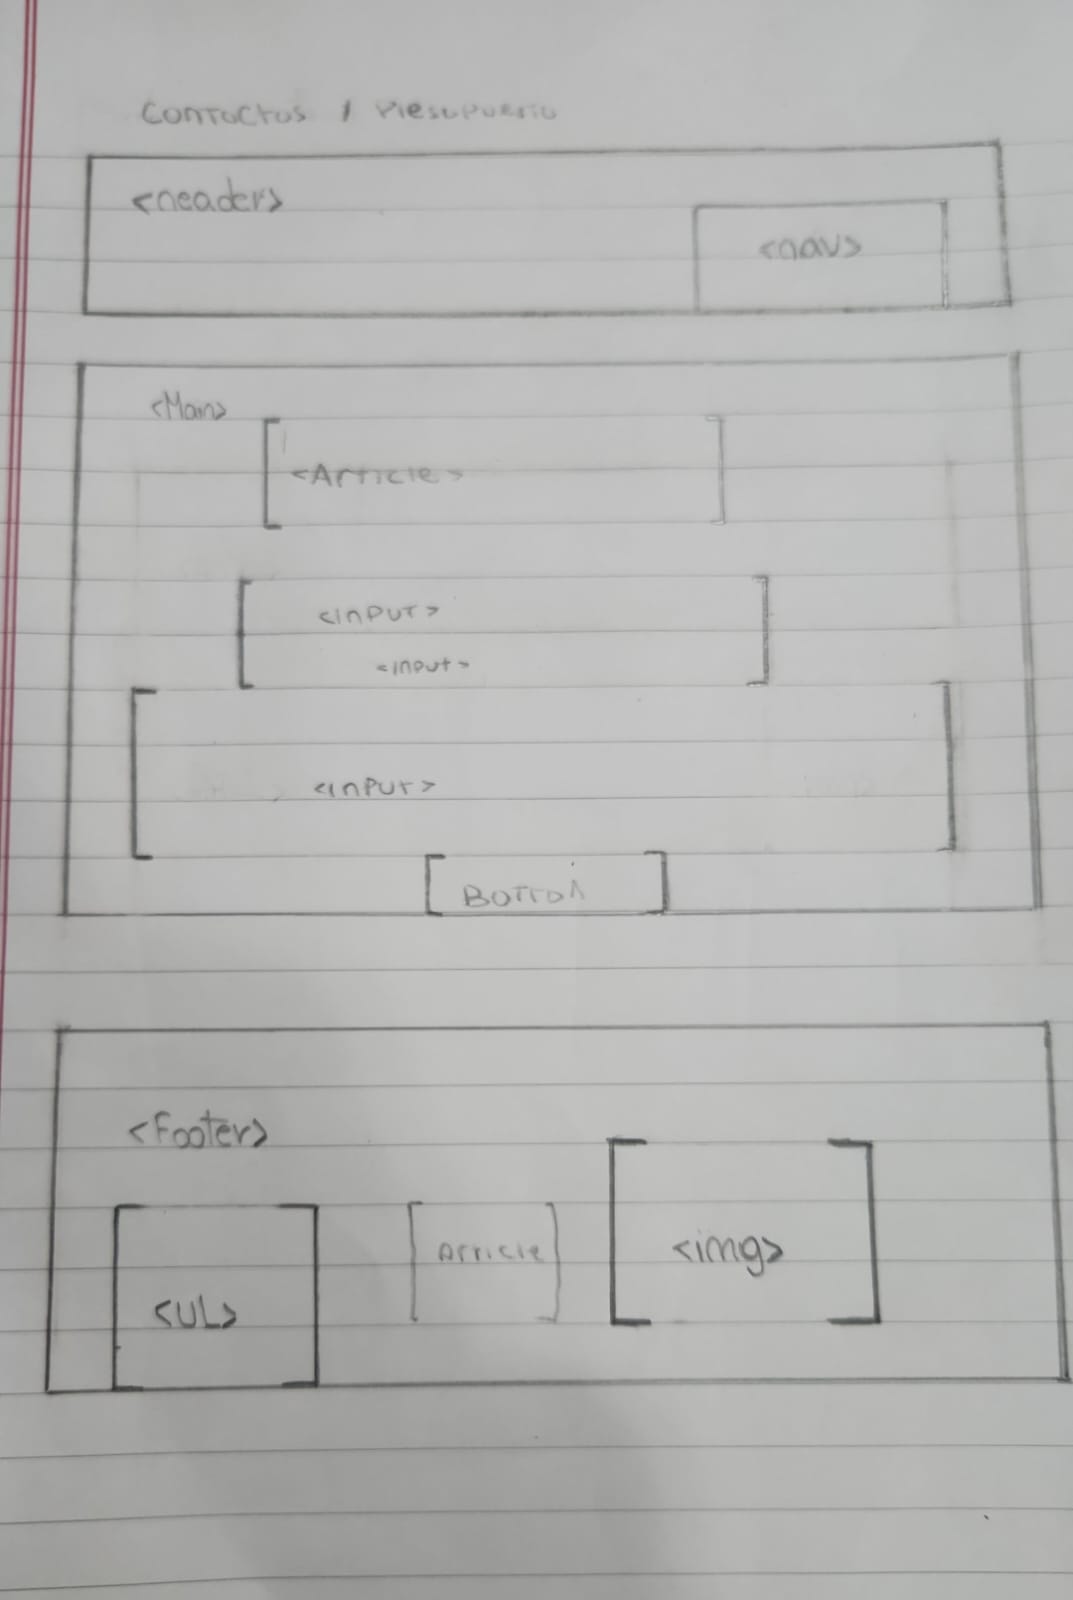 Contactos / Presupuesto
<header>
<nav>
<Main>
<Article>
<input>
<input>
<input>
Botton
<Footer>
<UL>
Article
<img>